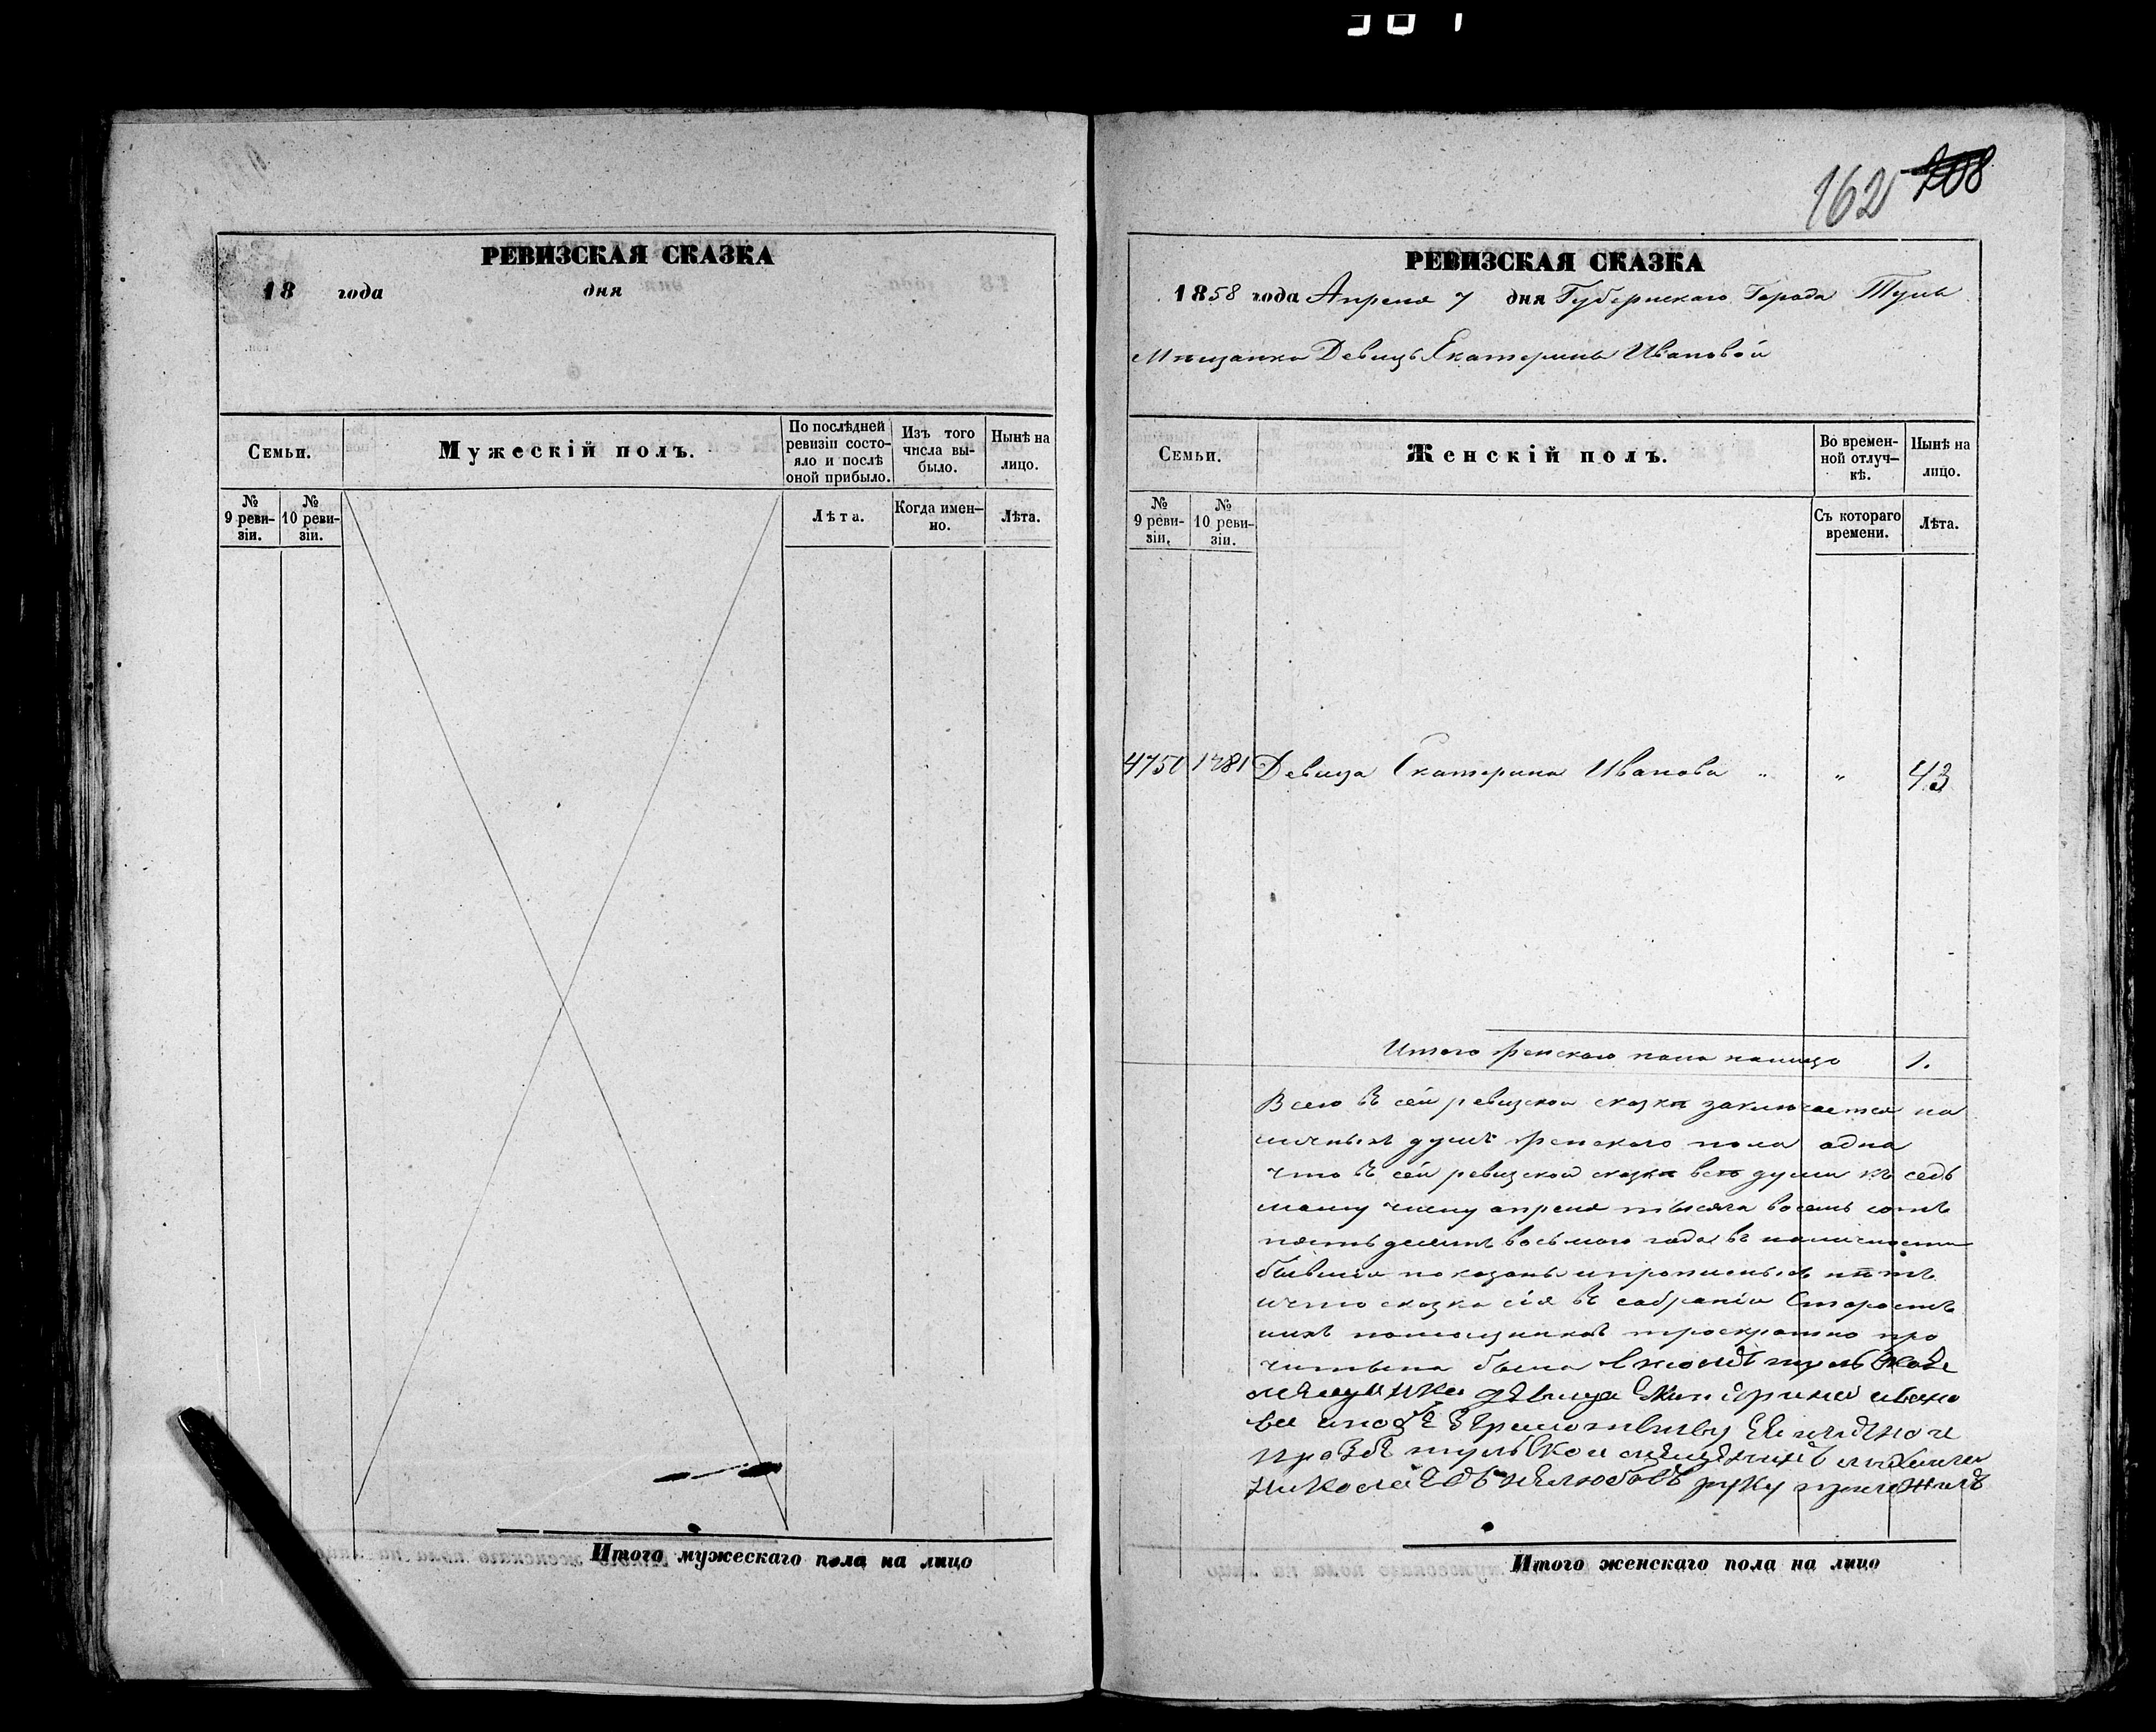 РЕВИЗСКАЯ СКАЗКА
18 года дня
Семьи.
Мужескій полъ.
По послѣдней
ревизіи состо-
яло и послѣ
оной прибыло.
Изъ того
числа вы-
было.
Нынѣ на
лицо.
№
9 реви-
зіи.
№
10 реви-
зіи.
Лѣта.
Когда имен-
но.
Лѣта.
Итого мужескаго пола на лицо
162 208
РЕВИЗСКАЯ СКАЗКА
1858 года Апреля 7 дня Губернскаго Города Тулы
Мѣщанки Девицы Екатерины Ивановой
Семьи.
Женскій полъ.
Во времен-
ной отлуч-
кѣ.
Нынѣ на
лицо.
№
9 реви-
зіи.
№
10 реви-
зіи.
Съ котораго
времени.
Лѣта.
1281 Девица Екатерина Иванова " " 43
Итого женскаго пола налицо 1.
Всего въ сей ревизской сказкѣ заключается на
личныхъ душъ женскаго пола одна
что въ сей ревизской сказкѣ всѣ души къ седь
мому числу апреля тысяча восемь сотъ
пятьдесятъ восьмаго года въ наличности
бывшіе показаны и прописныхъ нѣтъ
и что сказка сія въ собраніи Старостъ
ихъ помощниковъ троекратно про
читана была
девица Екатерина ивано
ва
николаевъ руку приложилъ
Итого женскаго пола на лицо